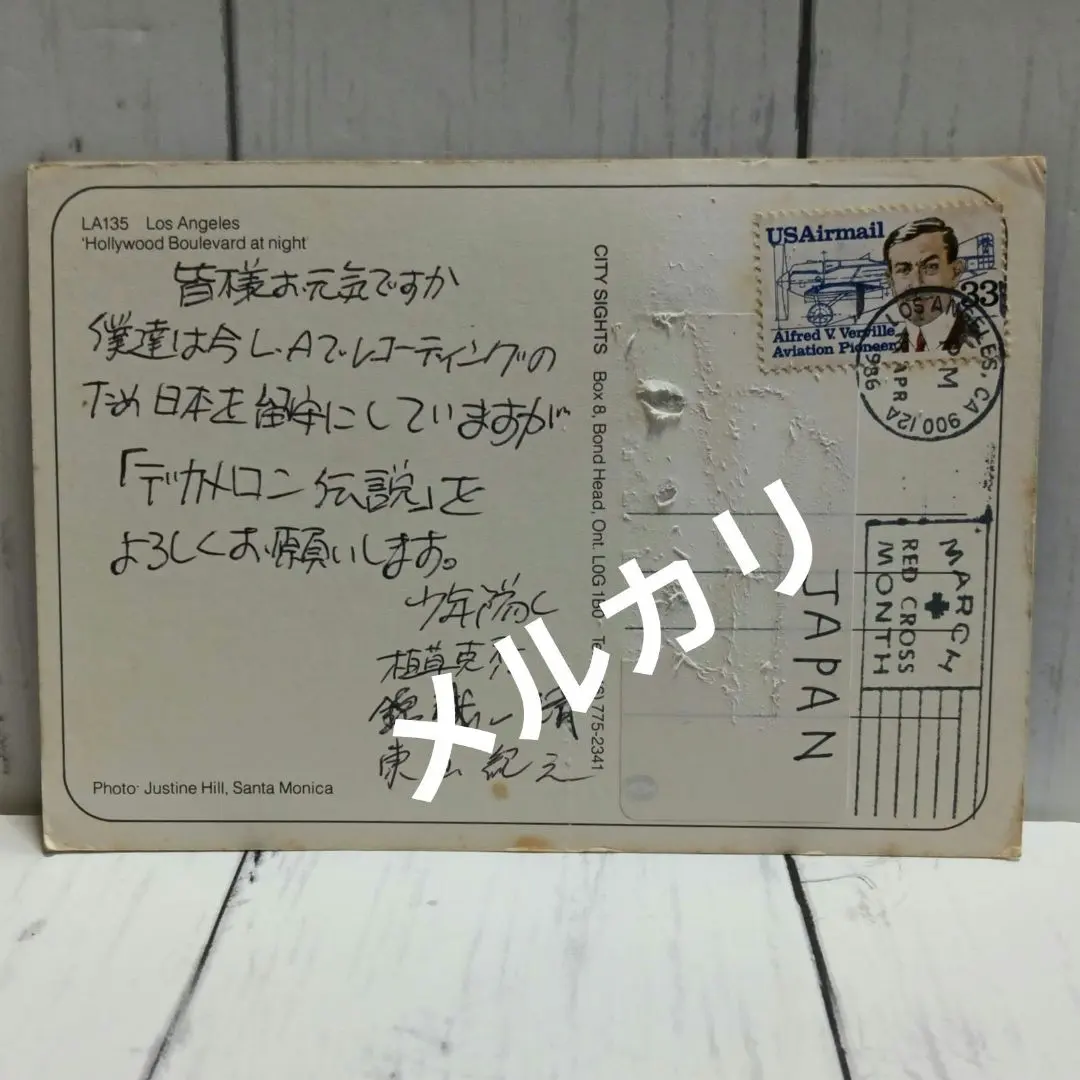 LA135 Los Angeles
'Hollywood Boulevard at night'
皆様お元気ですか
僕達は今L.Aでレコーディングの
ため日本を留守にしていますが
「デカメロン伝説」を
よろしくお願いします。
少年隊
植草克秀
錦織一清
東山紀之
Photo· Justine Hill, Santa Monica
CITY SIGHTS Box 8, Bond Head, Ont. L0G 1B0 775-2341
USAirmail
33
Alfred V. Verville
Aviation Pioneer
LOS ANGELES, CA 900 12A
PM
APR
1986
MARCH
RED CROSS
MONTH
JAPAN
メルカリ